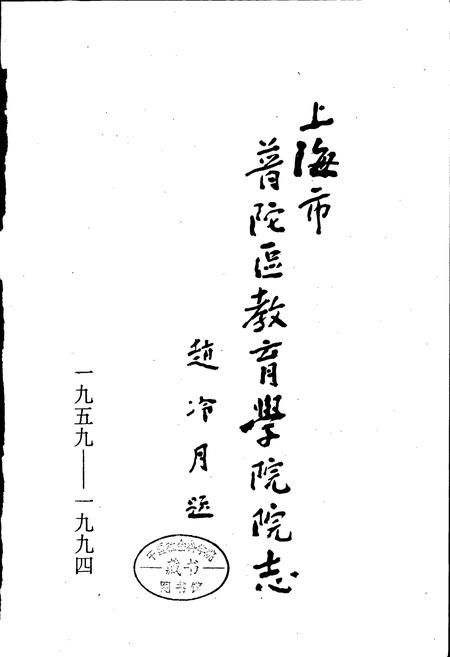 上海市
普陀區教育學院院志
趙冷月題
一九五九——一九九四
中国社会科学院
藏书
图书馆